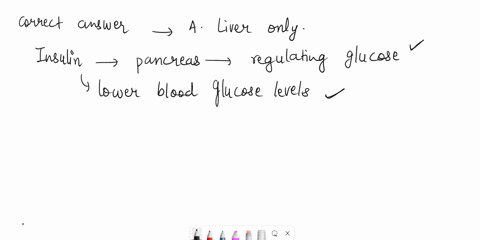 correct answer → A. Liver only.
Insulin → pancreas → regulating glucose ✓
↳ lower blood glucose levels ✓